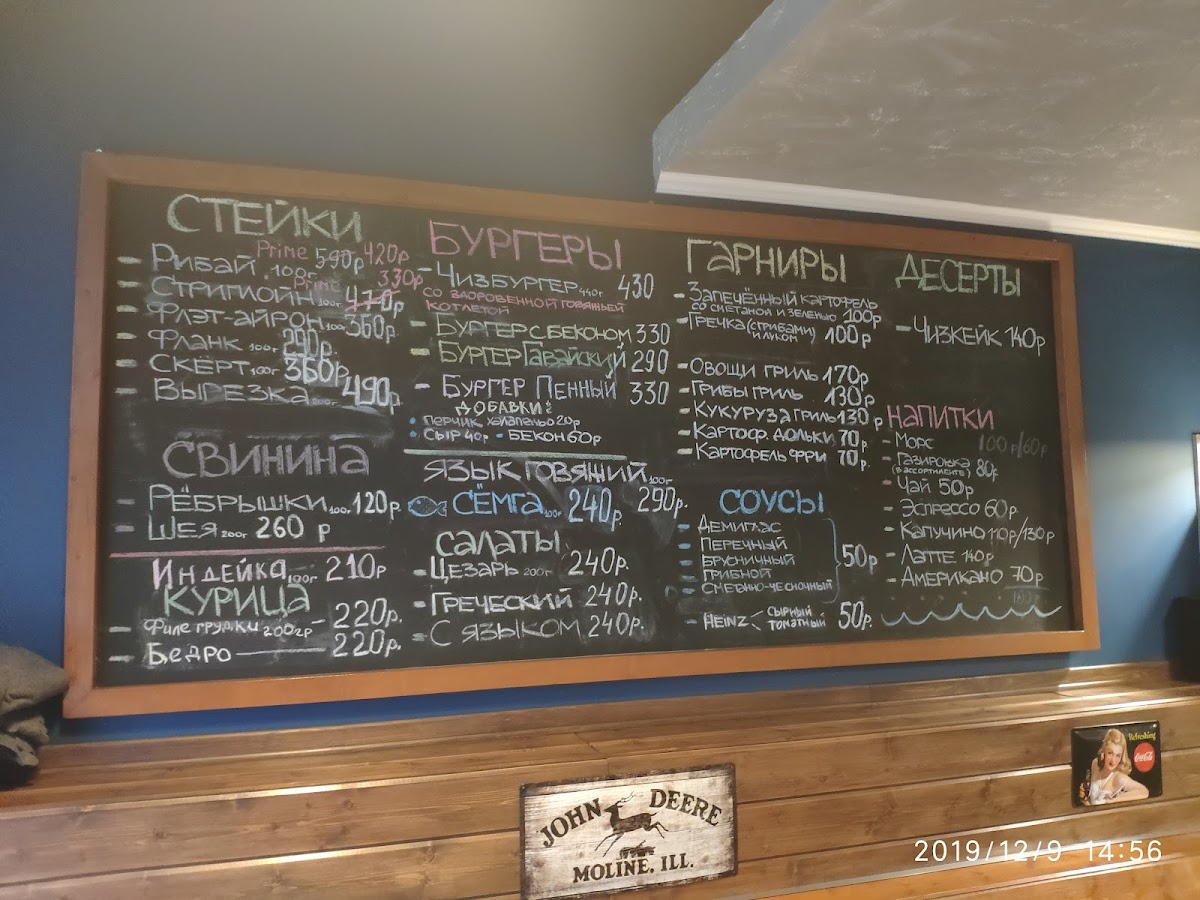 СТЕЙКИ
Prime 590р 420р
- Рибай 100г
Prime 330р
- Стриплойн 100г 470р
- Флэт-айрон 100г 360р
- Фланк 100г 290р
- Скёрт 100г 360р
- Вырезка 200г 490р
СВИНИНА
- Рёбрышки 100г. 120р
- Шея 200г 260 р
Индейка 190г 210р
КУРИЦА
- Филе грудки 200гр - 220р.
- Бедро 220р.
БУРГЕРЫ
- Чизбургер 440г 430
со здоровенной говяжьей
котлетой
- Бургер с беконом 330
- Бургер Гавайский 290
- Бургер Пенный 330
Добавки:
• Перчик халапеньо 20р
• Сыр 40р - Бекон 60р
Язык говяжий 100г 290р.
Сёмга 100г 240р.
САЛАТЫ
- Цезарь 200г 240р.
- Греческий 240р.
- С языком 240р.
ГАРНИРЫ
- Запечённый картофель
со сметаной и зеленью 100р
- Гречка (с грибами
и луком) 100р
- Овощи гриль 170р
- Грибы гриль 130р
- Кукуруза гриль 130р
- Картоф. дольки 70р.
- Картофель фри 70р.
СОУСЫ
- Демиглас
- Перечный
- Брусничный
- Грибной
- Сметанно-чесночный
50р
- Heinz < сырный
томатный 50р.
ДЕСЕРТЫ
- Чизкейк 140р
НАПИТКИ
- Морс 100р/60р
- Газировка
(в ассортименте) 80р
- Чай 50р
- Эспрессо 60р.
- Капучино 110р/130р
- Латте 140р
- Американо 70р
JOHN DEERE
MOLINE, ILL.
Refreshing
Coca-Cola
2019/12/9 14:56